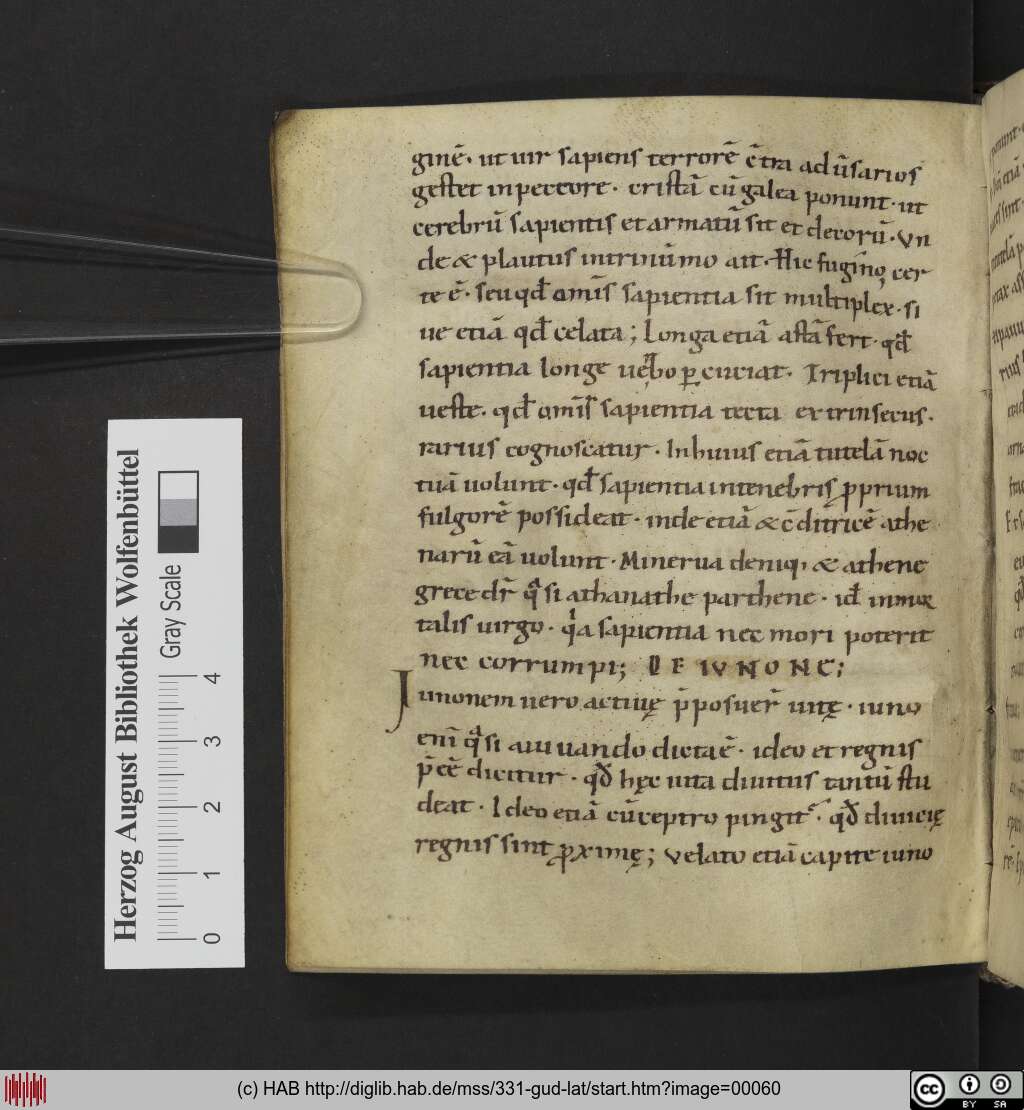 ginē· ut uir sapiens terrorē c̄tra adūsarios
gestet inpectore· cristā cū galea ponunt· ut
cerebrū sapientis et armatū sit et decorū· Vn
de & plautus intrinūmo ait· Hic fugīnoꝝ cer
te ē· seu qđ om̄is sapientia sit multiplex· si
ue etiā qđ celata; Longa etiā astā fert· qđ
sapientia longe uerbo ꝑcuciat· Triplici etiā
ueste· qđ om̄is sapientia tecta extrinsecus·
rarius cognoscatur· In huius etiā tutelā noc
tuā uolunt· qđ sapientia intenebris ꝓprium
fulgorē possideat· inde etiā & c̄ditricē athe
narū eā uolunt· Minerva deniq; & athene
grece dr̄ qͣsi athanathe parthene· id̄ inmor
talis uirgo· qͥa sapientia nec mori poterit
nec corrumpi; DE IVNONE;
Iunonem uero actiuę p̄posuer̄ uitę· iuno
enī qͣsi a iuuando dictaē· ideo et regnis
p̄cē dicitur· qđ hęc uita diuitus tantū stu
deat· Ideo etiā cūceptro pingit᷑· qđ diuicię
regnis sint ꝓximę; Velato etiā capite iuno
Herzog August Bibliothek Wolfenbüttel
Gray Scale
0 1 2 3 4
(c) HAB http://diglib.hab.de/mss/331-gud-lat/start.htm?image=00060
cc BY SA